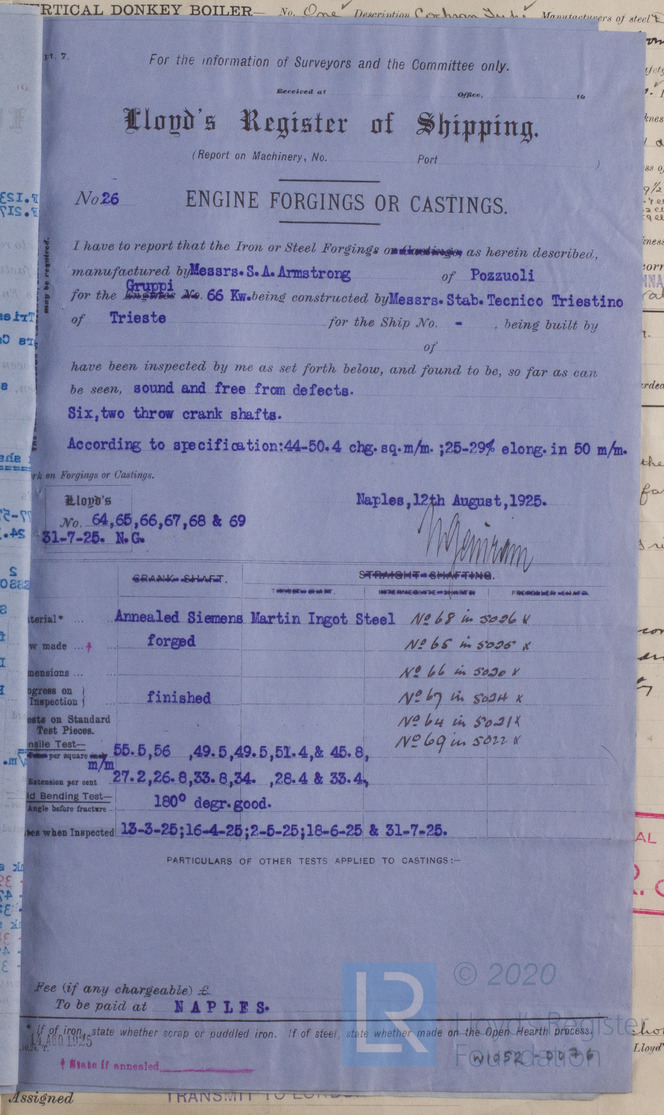 VERTICAL DONKEY BOILER— No. One Description Cochran Manufacturers of steel
pt. 7.
For the information of Surveyors and the Committee only.
Received at Office, 19
Lloyd's Register of Shipping.
(Report on Machinery, No. Port )
No. 26 ENGINE FORGINGS OR CASTINGS.
may be required.
I have to report that the Iron or Steel Forgings or castings as herein described,
manufactured by Messrs. S. A. Armstrong of Pozzuoli
Gruppi
for the Engines No. 66 Kw. being constructed by Messrs. Stab. Tecnico Triestino
of Trieste for the Ship No. - , being built by
of
have been inspected by me as set forth below, and found to be, so far as can
be seen, sound and free from defects.
Six, two throw crank shafts.
According to specification:44-50.4 chg.sq.m/m.;25-29% elong.in 50 m/m.
rk on Forgings or Castings.
Lloyd's
No. 64,65,66,67,68 & 69
31-7-25. N.G.
Naples,12th August,1925.
CRANK SHAFT. STRAIGHT SHAFTING.
terial* ... Annealed Siemens Martin Ingot Steel No 68 in 5026 x
w made ... † forged No 65 in 5025 x
mensions ... No 66 in 5020 x
ogress on Inspection finished No 67 in 5024 x
ests on Standard Test Pieces. No 64 in 5021 x
nsile Test— No 69 in 5022 x
per square m/m 55.5,56 ,49.5,49.5,51.4,& 45.8,
Extension per cent 27.2,26.8,33.8,34. ,28.4 & 33.4,
ld Bending Test—
Angle before fracture 180° degr.good.
tes when Inspected 13-3-25;16-4-25;2-5-25;18-6-25 & 31-7-25.
PARTICULARS OF OTHER TESTS APPLIED TO CASTINGS:—
Fee (if any chargeable) £
To be paid at NAPLES.
* If of iron, state whether scrap or puddled iron. If of steel, state whether made on the Open Hearth process.
† State if annealed
© 2020
LR
Lloyd's Register
Foundation
W1052-0076
Assigned TRANSMIT TO LONDON